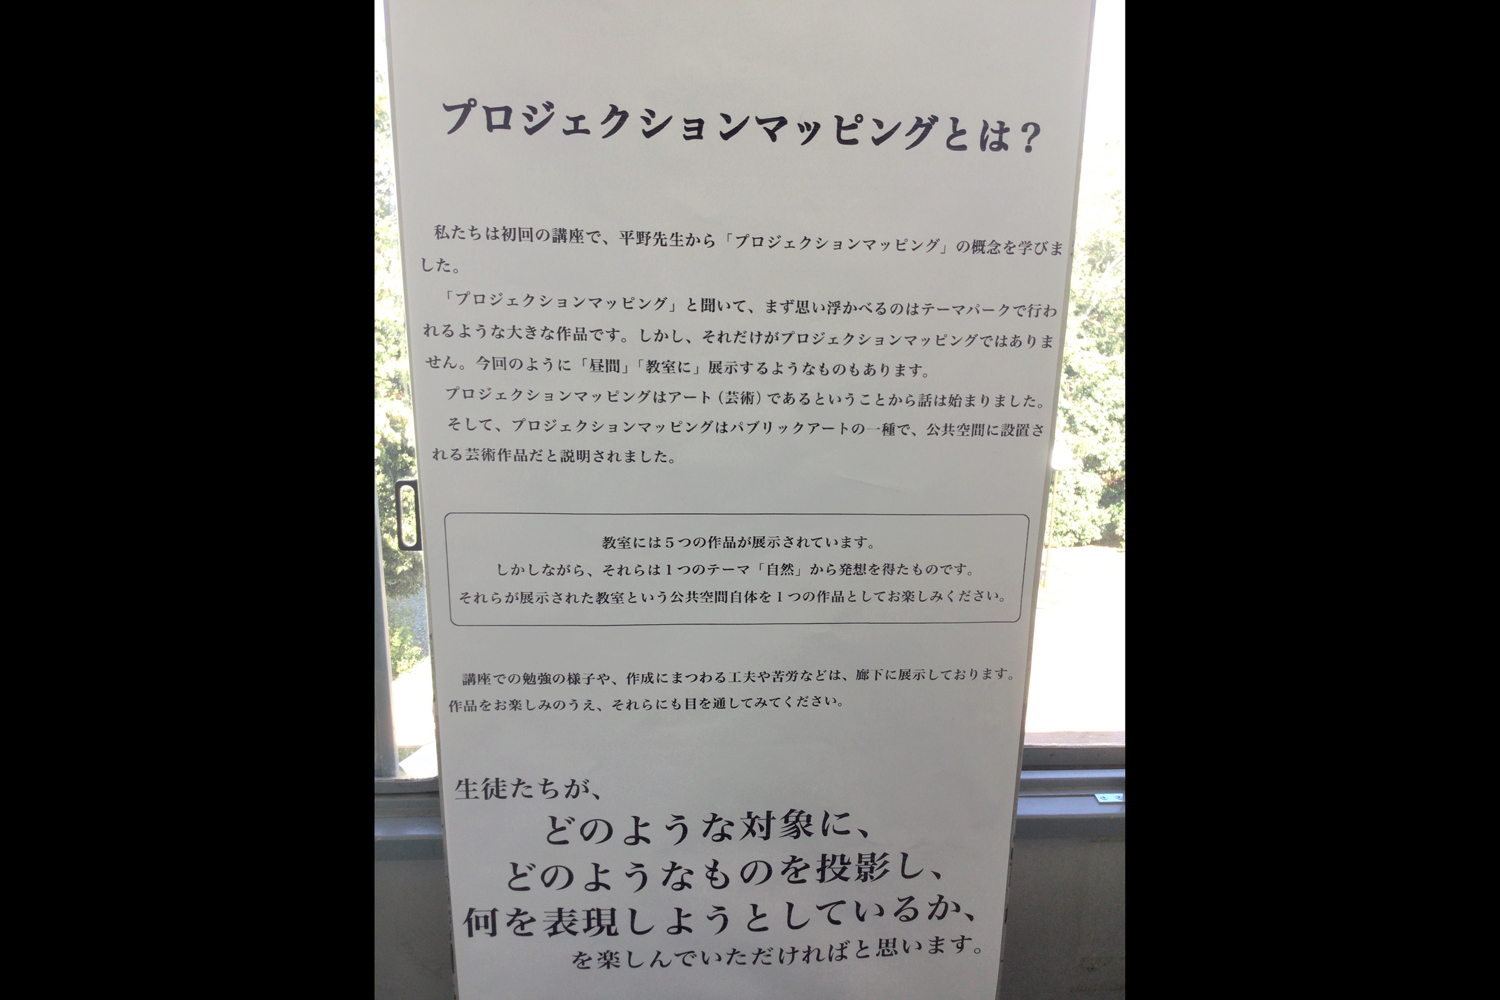 プロジェクションマッピングとは？
私たちは初回の講座で、平野先生から「プロジェクションマッピング」の概念を学びま
した。
「プロジェクションマッピング」と聞いて、まず思い浮かべるのはテーマパークで行わ
れるような大きな作品です。しかし、それだけがプロジェクションマッピングではありま
せん。今回のように「昼間」「教室に」展示するようなものもあります。
プロジェクションマッピングはアート（芸術）であるということから話は始まりました。
そして、プロジェクションマッピングはパブリックアートの一種で、公共空間に設置さ
れる芸術作品だと説明されました。
教室には５つの作品が展示されています。
しかしながら、それらは１つのテーマ「自然」から発想を得たものです。
それらが展示された教室という公共空間自体を１つの作品としてお楽しみください。
講座での勉強の様子や、作成にまつわる工夫や苦労などは、廊下に展示しております。
作品をお楽しみのうえ、それらにも目を通してみてください。
生徒たちが、
どのような対象に、
どのようなものを投影し、
何を表現しようとしているか、
を楽しんでいただければと思います。